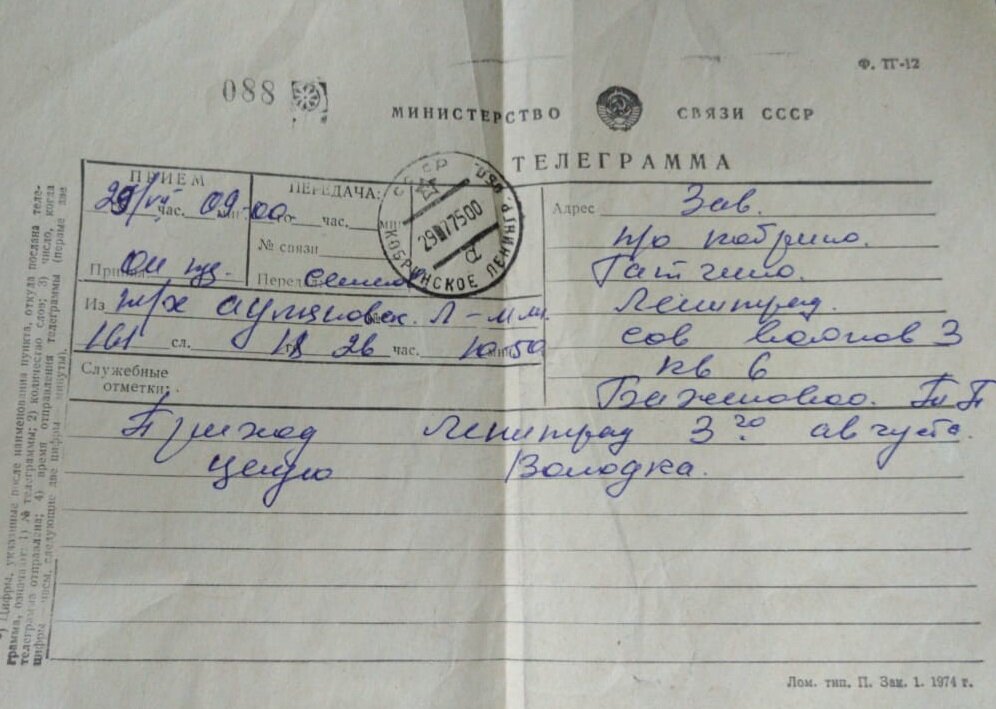 Ф. ТГ-12
088
МИНИСТЕРСТВО СВЯЗИ СССР
ТЕЛЕГРАММА
ПРИЕМ
29/VII час. 09-00 мин.
Принял:
ПЕРЕДАЧА:
го час. мин
№ связи
Передал
СССР
29 VII 7500
КОБРИНСКОЕ ЛЕНИНГР. ОБЛ.
Из т/х
сл. го 26 час. 10 мин 50
Служебные
отметки:
Адрес Зав.
п/о кобрино.
Гатчино.
Ленинград.
сов 3
кв 6
Баженовой. Т.П
Приход Ленинград 3го августа.
целую Володка.
*) Цифры, указанные после наименования пункта, откуда послана теле-
грамма, означают: 1) № телеграммы; 2) количество слов; 3) число, когда
телеграмма отправлена; 4) время отправления телеграммы (первые две
цифры — часы, следующие две цифры — минуты).
Лом. тип. П. Зак. 1. 1974 г.